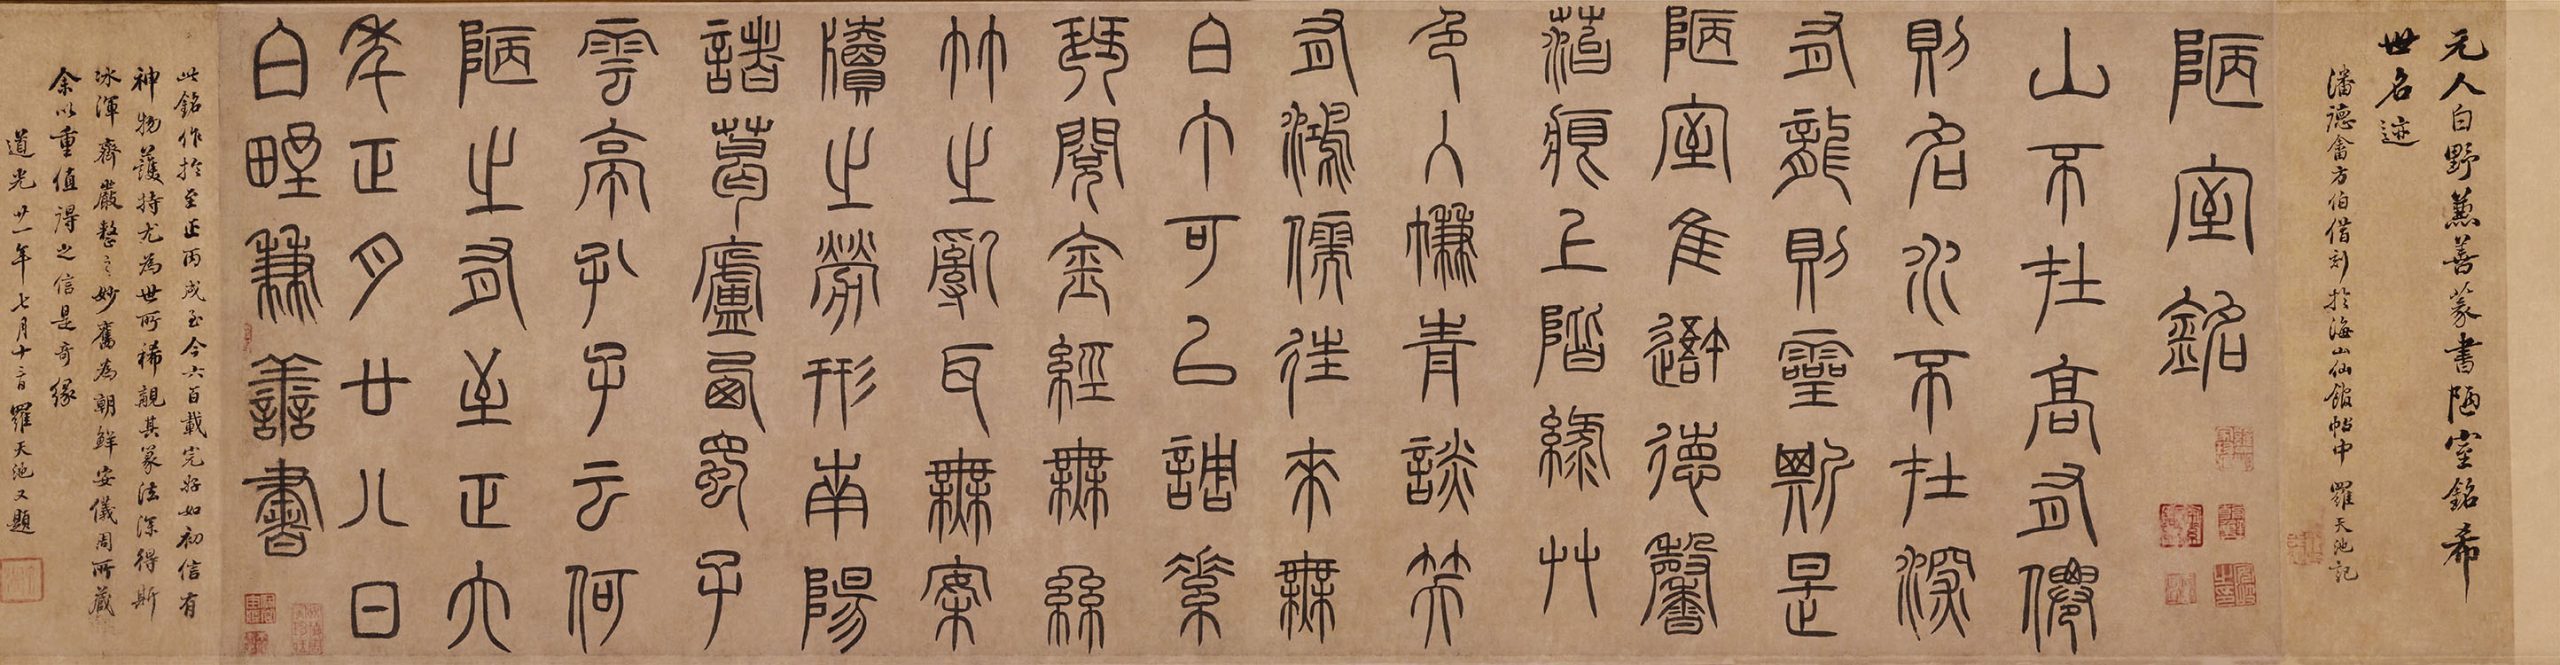 元人白野兼善篆書陋室銘希
世名迹
潘德畬方伯借刻於海山仙館帖中 羅天池記
陋室銘
山不在高有僊
則名水不在深
有龍則靈斯是
陋室惟吾德馨
苔痕上階綠艸
色入簾青談笑
有鴻儒往來無
白丁可以調素
琴閱金經無絲
竹之亂耳無案
牘之勞形南陽
諸葛廬西蜀子
雲亭孔子云何
陋之有至正六
年正月廿八日
白野兼善書
此銘作於至正丙戌至今六百載完好如初信有
神物護持尤為世所稀覯其篆法深得斯
冰渾齊嚴整之妙舊為朝鮮安儀周所藏
余以重值得之信是奇緣
道光廿一年七月十二日 羅天池又題